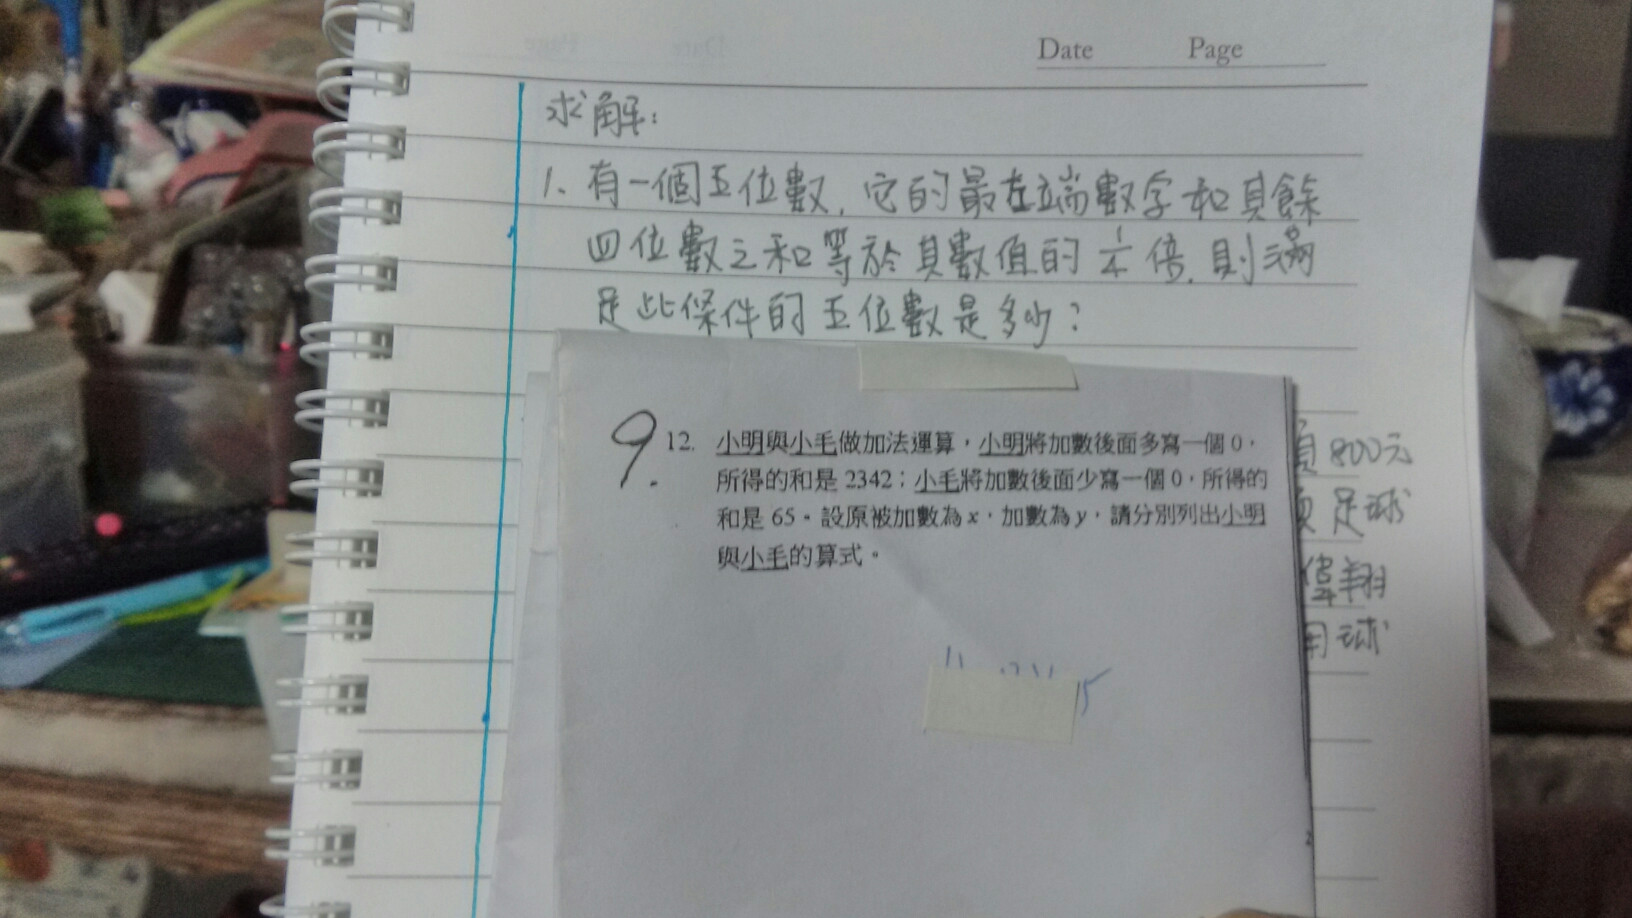 Date Page
求解:
1. 有一個五位數, 它的最左端數字和其餘
四位數之和等於其數值的 1/4 倍, 則滿
足此條件的五位數是多少?
9.
12. 小明與小毛做加法運算，小明將加數後面多寫一個 0，
所得的和是 2342；小毛將加數後面少寫一個 0，所得的
和是 65。設原被加數為 x，加數為 y，請分別列出小明
與小毛的算式。
800元
足球
偉翔
用球